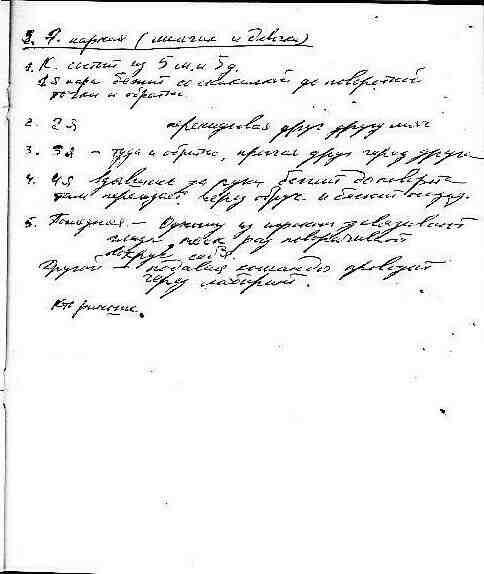 3. Э. парная (мальчик и девочка)
1. К. состоит из 5 м. и 5 д.
1я пара бежит со скакалкой до поворотной
точки и обратно.
2. 2я перекидывая друг другу мяч
3. 3я – туда и обратно, прыгая друг через друга
4. 4я взявшись за руки бегит до поворота
там перелезает через обруч и бегит назад.
5. Поводная – Одному из игроков завязывают
глаза, неск. раз поворачивают
вокруг себя.
Другой – подавая команды проводит
через лабиринт.